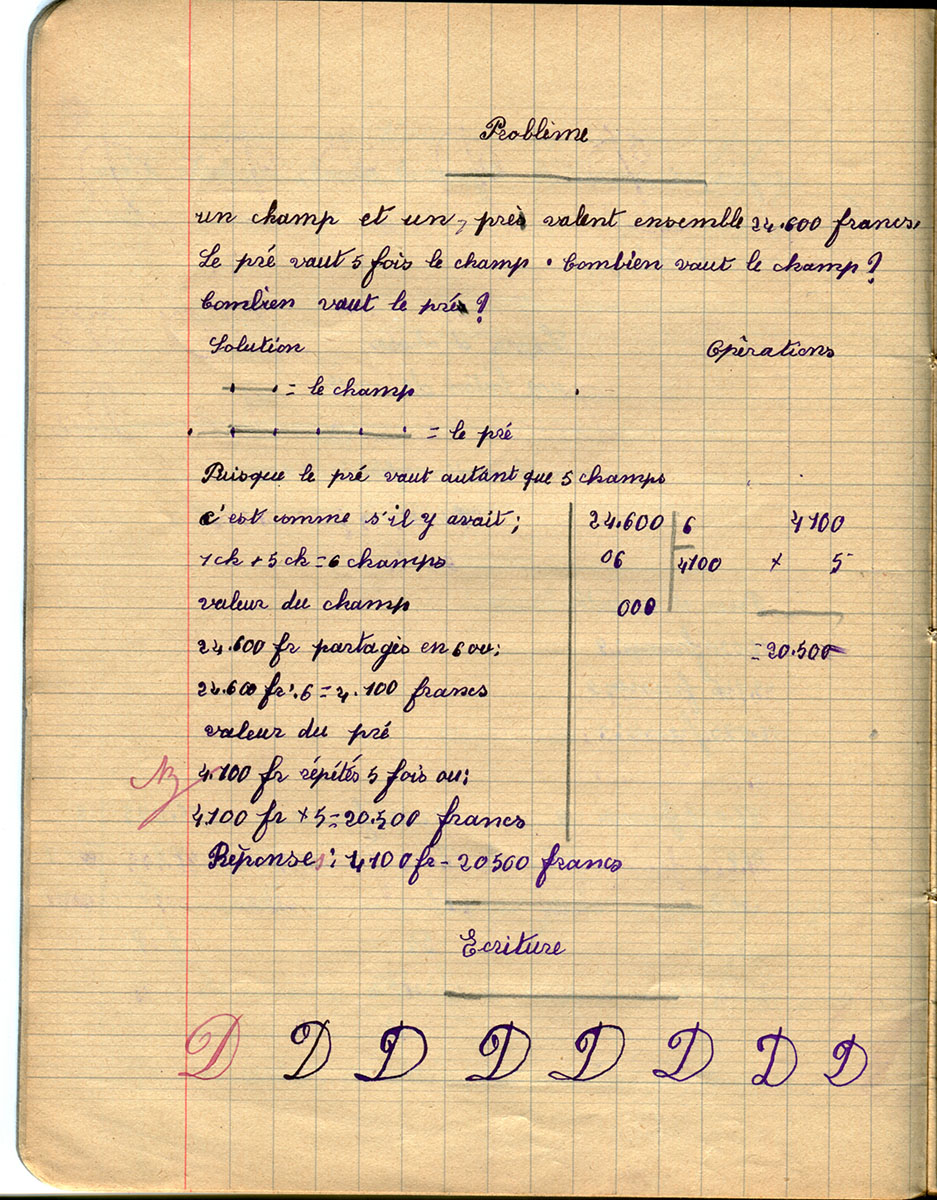 Problème
un champ et un prés valent ensemble 24.600 francs.
Le pré vaut 5 fois le champ. Combien vaut le champ?
Combien vaut le pré?
Solution Opérations
= le champ
= le pré
Puisque le pré vaut autant que 5 champs
c'est comme s'il y avait;
1 ch + 5 ch = 6 champs
valeur du champ
24.600 fr partagés en 6 ou:
24.600 fr : 6 = 4.100 francs
valeur du pré
4.100 fr répétés 5 fois ou;
4.100 fr × 5 = 20.500 francs
Réponses: 4100 fr - 20500 francs
24.600 6 4100
06 4100 × 5
000
= 20.500
Ecriture
D D D D D D D D